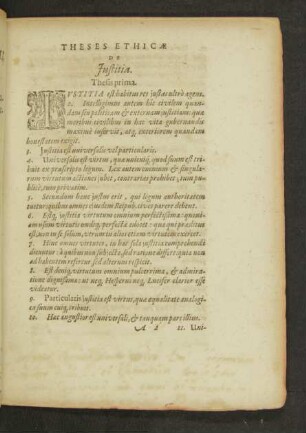 THESES ETHICÆ
DE
Justitia.
Thesis prima.
IVSTITIA est habitus res justas ultrò agens.
2. Intelligimus autem hîc civilem quan-
dam seu politicam & externam justitiam: quæ
moribus civilibus in hac vita gubernandis
maximè inservit, atq; exteriorem quandam
honestatem exigit.
3. Justitia est universalis vel particularis.
4. Universalis est virtus, quæ unicuiq; quod suum est tri-
buit ex præscripto legum. Lex autem omnium &
virtutum actiones jubet, contrarias prohibet, tum publi-
cè, tum privatim.
5. Secundum hanc justus erit, qui legum authoritatem
tuetur: quibus omnes ejusdem Reipub. cives parere debent.
6. Estq; justitia virtutum omnium perfectissima:
est
7. Hinc omnes virtutes, in hac sola justitia comprehendi
dicuntur: à quibus tamen subjecto, sed ratione differt: quia non
ad habentem refertur sed alterum respicit.
8. Est deniq; virtutum omnium pulcerrima, & admira-
tione dignissima: ut neq; Hesperus neq; Lucifer clarior esse
videatur.
9. Particularis justitia est virtus, quæ æqualitate analogi-
ca suum cuiq; tribuit.
10. Hæc angustior est universali, & tanquam pars illius.
A 2 11. Uni-